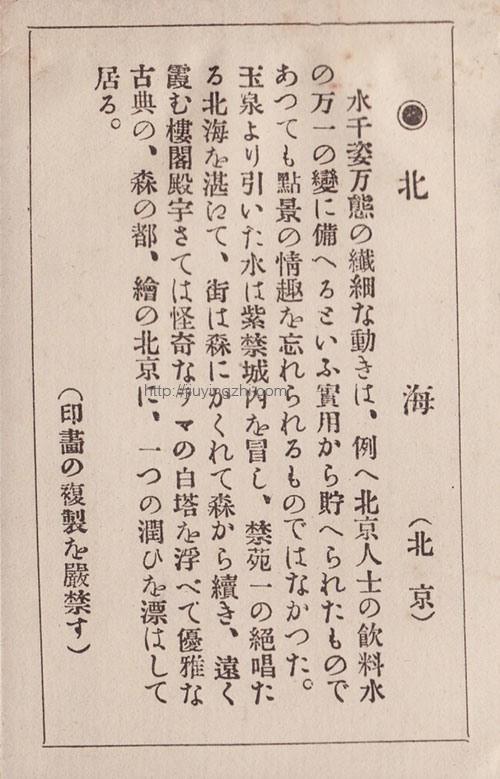 ◉北海（北京）
水千姿万態の纎細な動きは、例へ北京人士の飮料水
の万一の變に備へるといふ實用から貯へられたもので
あつても點景の情趣を忘れられるものではなかつた。
玉泉より引いた水は紫禁城内を冒し、禁苑一の絕唱た
る北海を湛にて、街は森にかくれて森から續き、遠く
霞む樓閣殿宇さては怪奇なラマの白塔を浮べて優雅な
古典の、森の都、繪の北京に、一つの潤ひを漂はして
居る。
（印畵の複製を嚴禁す）
http://juyingzhi.com/